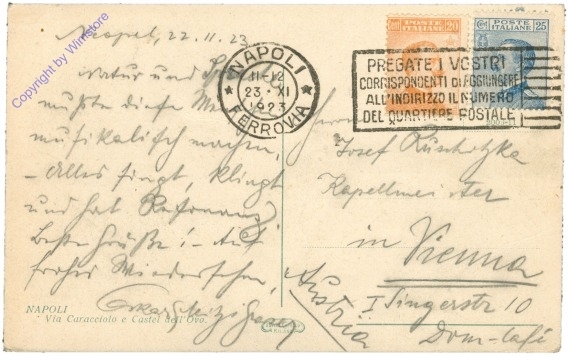 Copyright by Winstore
Neapel, 22.11.23
Natur und
mußte diese
musikalisch machen,
Alles singt, klingt
und hat Resonanz!
Beste Grüße! Auf
frohes Wiedersehen,
NAPOLI
Via Caracciolo e Castel dell'Ovo.
NAPOLI
11-12
23·XI
1923
FERROVIA
POSTE ITALIANE
20
POSTE
ITALIANE
25
PREGATE I VOSTRI
CORRISPONDENTI DI AGGIUNGERE
ALL'INDIRIZZO IL NUMERO
DEL QUARTIERE POSTALE
Herrn
Josef
Kapellmeister
in Vienna
I Singerstr 10
Dom-Café
Austria